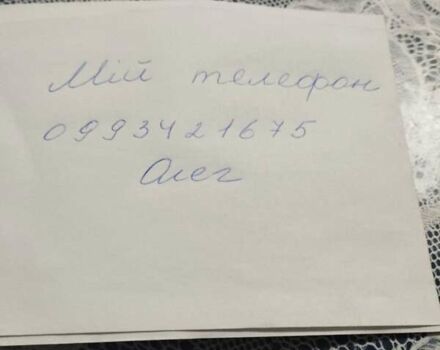 Мій телефон
0993421675
Олег